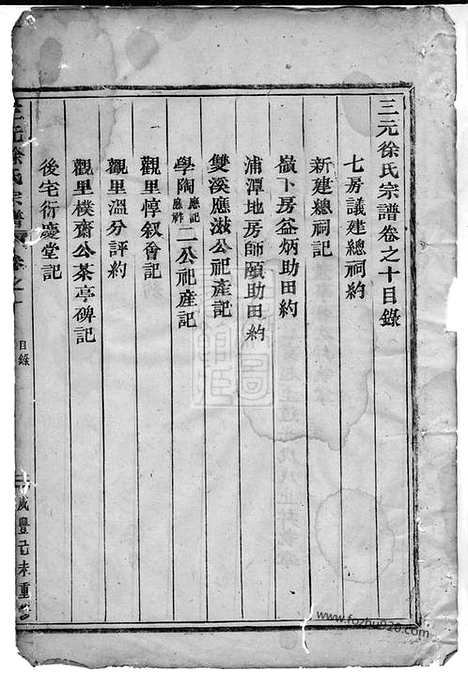 三元徐氏宗譜卷之十目錄
七房議建總祠約
新建總祠記
嶽卜房益炳助田約
浦潭地房師頤助田約
雙溪應滋公祀產記
學陶應記應祥二公祀產記
觀里惇叙會記
觀里溫分評約
觀里樸齋公茶亭碑記
後宅衍慶堂記
三元徐氏宗譜 卷之十
目錄
咸豐己未重修
www.fozhu920.com